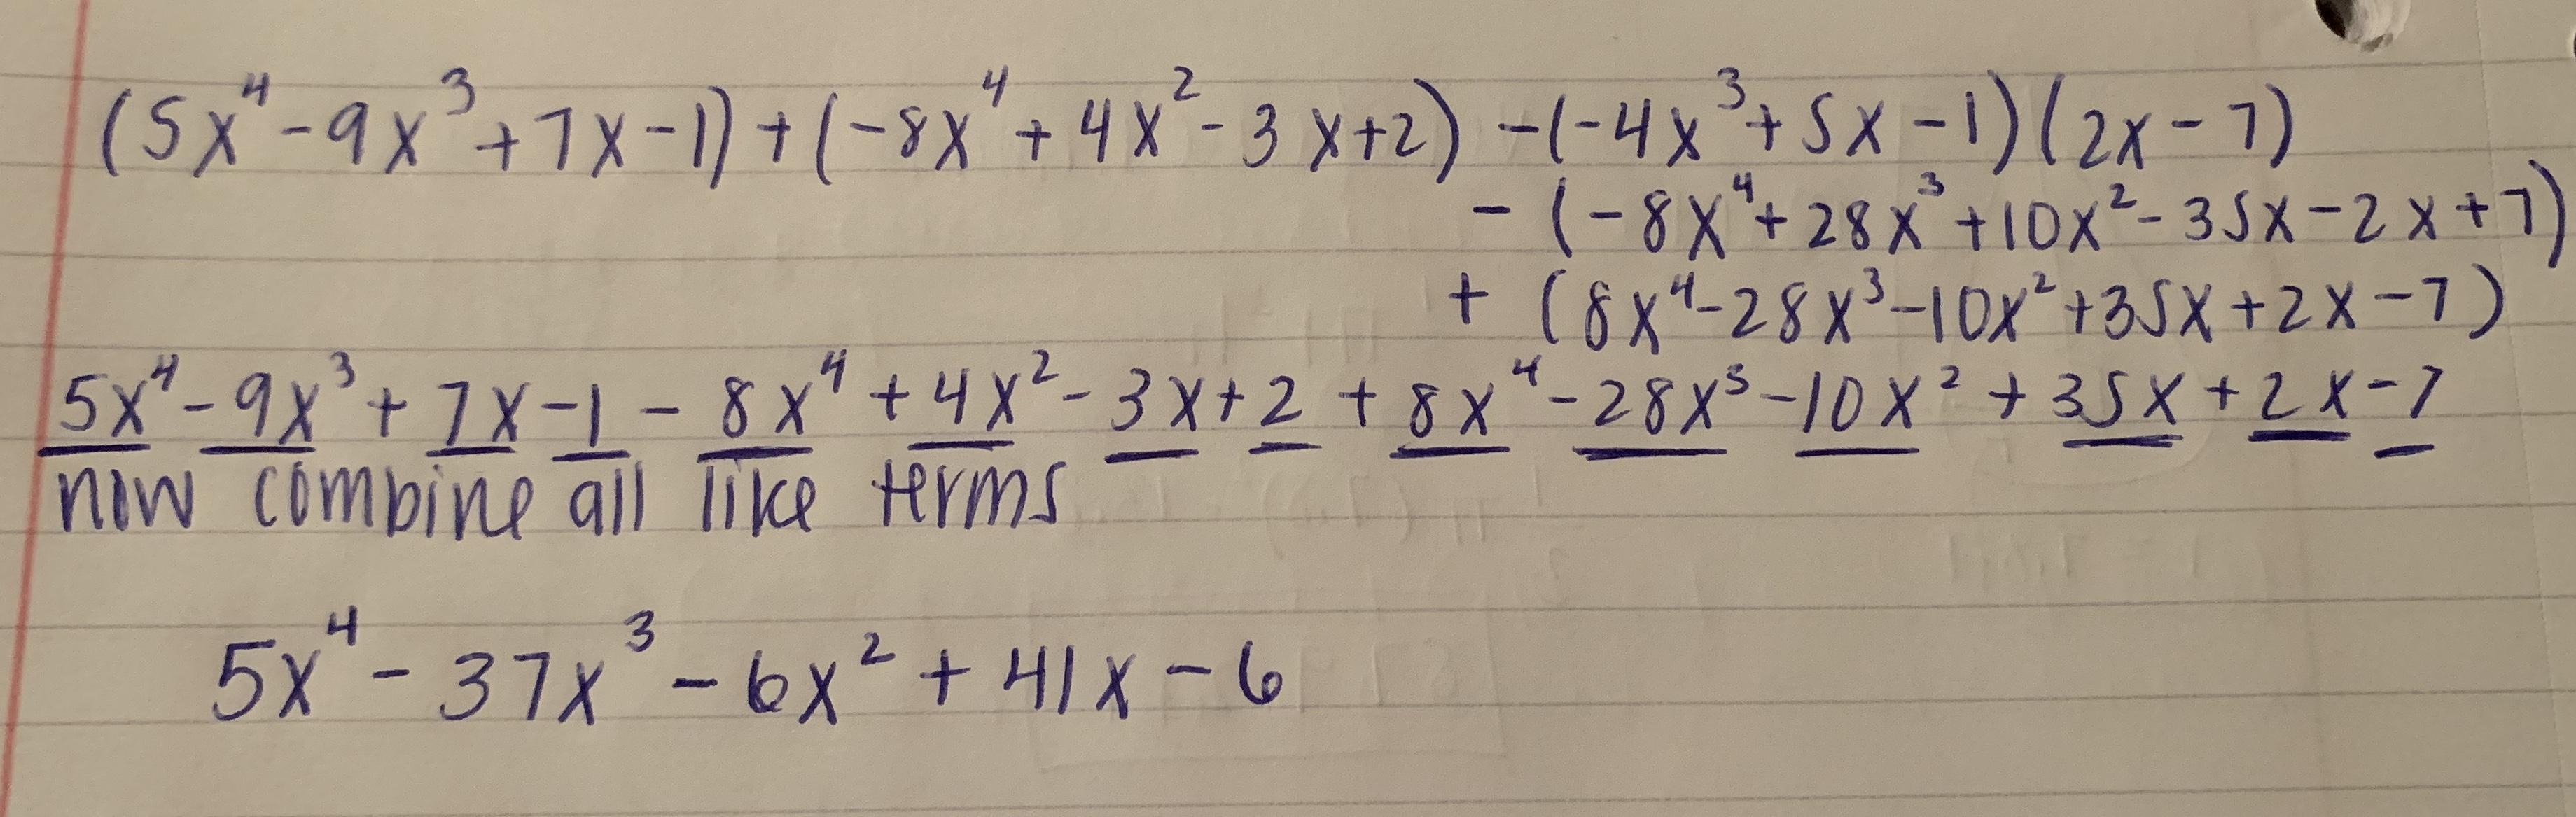 (5x⁴-9x³+7x-1)+(-8x⁴+4x²-3x+2)-(-4x³+5x-1)(2x-7)
-(-8x⁴+28x³+10x²-35x-2x+7)
+(8x⁴-28x³-10x²+35x+2x-7)
5x⁴-9x³+7x-1-8x⁴+4x²-3x+2+8x⁴-28x³-10x²+35x+2x-7
now combine all like terms
5x⁴-37x³-6x²+41x-6